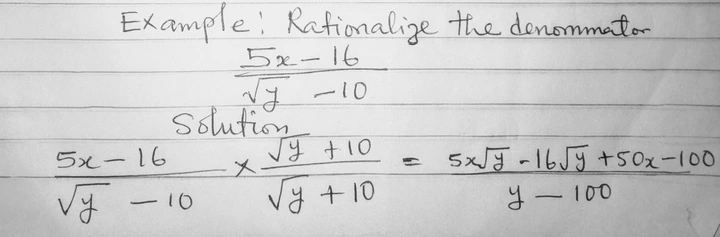 Example: Rationalize the denommator
5x - 16
√y - 10
Solution
5x - 16 / √y - 10 × √y + 10 / √y + 10 = 5x√y - 16√y + 50x - 100 / y - 100